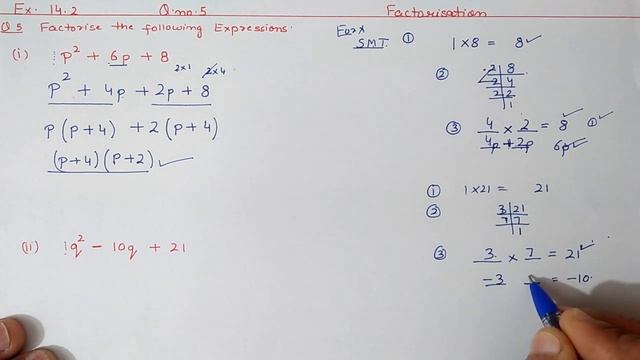 Ex. 14.2 Q.no.5 Factorisation
Q5 Factorise the following Expressions.
(i) p² + 6p + 8
2x1 2x4
p² + 4p + 2p + 8
p(p+4) + 2(p+4)
(p+4)(p+2) ✓
(ii) 1q² - 10q + 21
For x
SMT.
① 1x8 = 8 ✓
② 2|8
2|4
2|2
1
③ 4 x 2 = 8 ① ✓
4p + 2p 6p ✓
① 1x21 = 21
② 3|21
7|7
1
③ 3 x 7 = 21 ✓
-3 = -10.